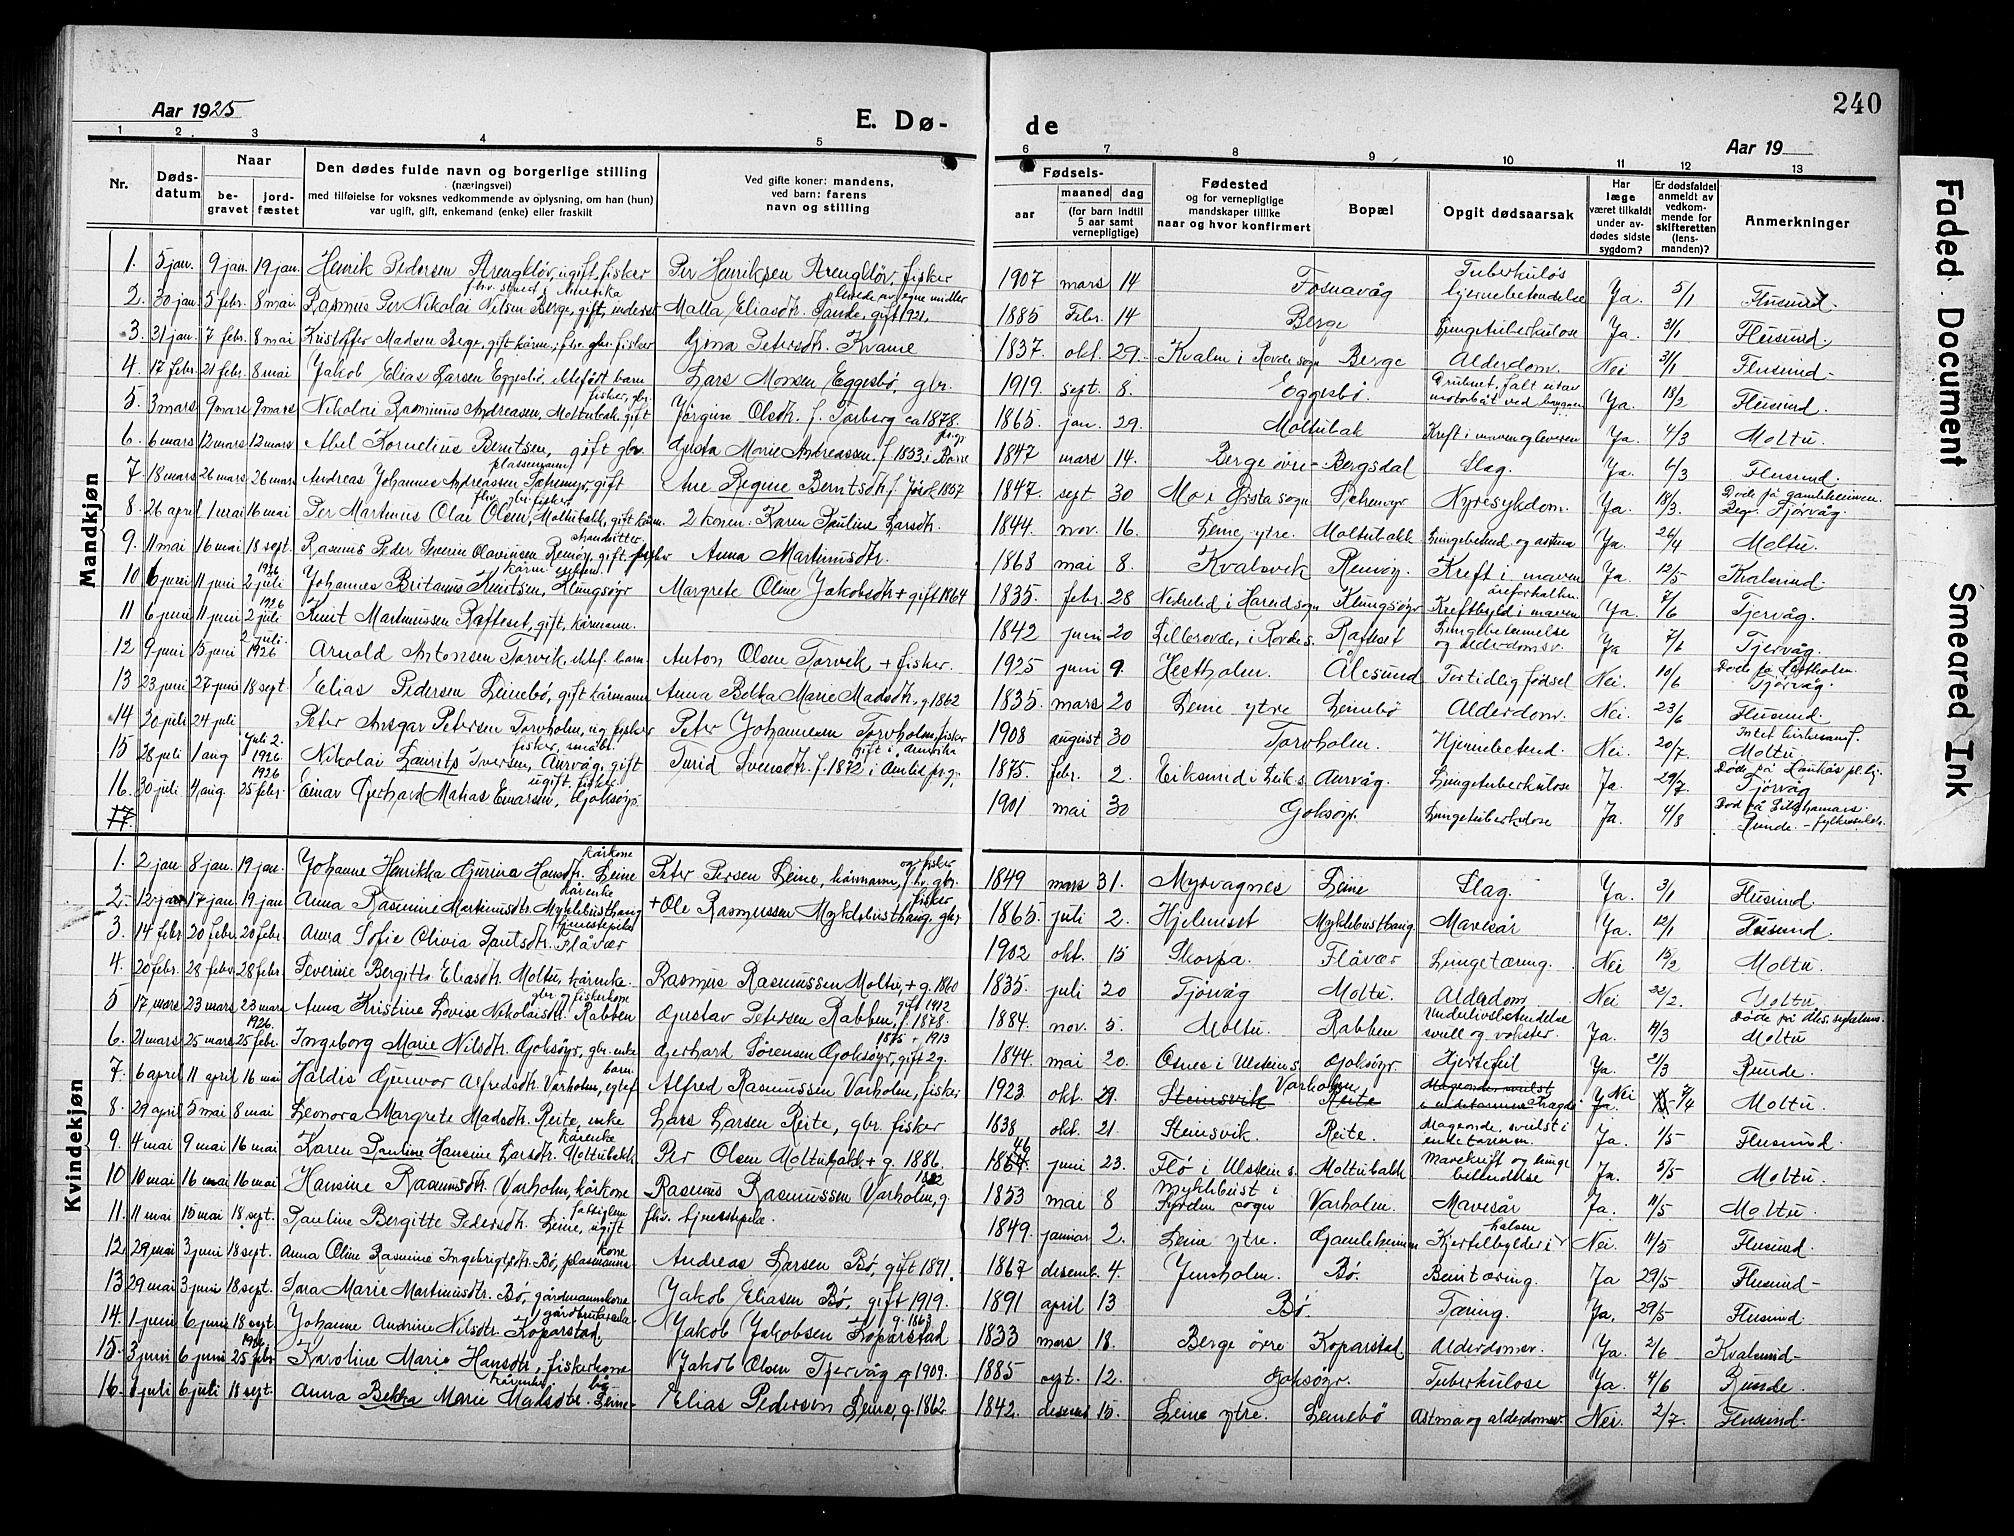 240
Aar 1925
E. Dø-
de
Aar 19
1 2 3 4 5 6 7 8 9 10 11 12 13
Nr.
Døds-
datum
Naar
be-
gravet
jord-
fæstet
Den dødes fulde navn og borgerlige stilling
(næringsvei)
med tilføielse for voksnes vedkommende av oplysning, om han (hun)
var ugift, gift, enkemand (enke) eller fraskilt
Ved gifte koner: mandens,
ved barn: farens
navn og stilling
Fødsels-
aar
maaned
dag
(for barn indtil
5 aar samt
vernepligtige)
Fødested
og for vernepligtige
mandskaper tillike
naar og hvor konfirmert
Bopæl
Opgit dødsaarsak
Har
læge
været tilkaldt
under av-
dødes sidste
sygdom?
Er dødsfaldet
anmeldt av
vedkom-
mende for
skifteretten
(lens-
manden)?
Anmerkninger
Mandkjøn
1. 5 jan. 9 jan. 19 jan. Henrik Pedersen, ugift, fisker Per Henriksen, fisker 1907 mars 14 Fosnavåg Tuberkuløs hjernebetendelse Ja. 5/1 Flusund.
2. 30 jan. 5 febr. 8 mai Rasmus Per Nikolai Nilsen Berge, gift, Malla Eliasdtr. Sande, gift 1921, 1885 Febr. 14 Berge Lungetuberkulose Ja. 31/1 Flusund.
3. 31 jan. 7 febr. 8 mai Kristoffer Madsen Berge, gift kårm., fhv. gbr. fisker Gjina Petersdtr. Kvame 1837. okt. 29. Kvalm i Rovde sogn Berge Alderdom. Nei 31/1 Flusund.
4. 17 febr. 21 febr. 8 mai Jakob Elias Larsen Eggesbø, ektefødt barn Lars Monsen Eggesbø, gbr. 1919. sept. 8. Eggesbø. Druknet, falt utav motorbåt ved Ja. 18/2 Flusund.
5. 3 mars 9 mars 9 mars Nikolai Rasmus Andreasen, Moltubak, gift fisker, gbr. Jørgine Olsdtr. f. Torberg ca 1878. 1865. jan. 29. Moltubak Kreft i maven og leveren Ja. 4/3 Moltu.
6. 6 mars 12 mars 12 mars Abel Kornelius Berntsen, gift gbr. Gjusta Marie Andreassen f. 1853 i 1847 mars 14. Berge øvre Bergsdal Slag. Ja. 6/3 Flusund.
7. 18 mars 26 mars 26 mars Andreas Johannes Andreassen, gift plassmann Ane Regine Berntsdtr. f. 1857 1847. sept 30 Moe Ørsta sogn Nyresykdom. Ja. 18/3. Døde på gamleheimen. Tjørvåg.
8. 26 april 1 mai 16 mai Per Martinus Olai Olsen, Moltubakk, gift kårm. fhv. gbr. fisker 2 konen: Karen Pauline Larsdtr. 1844 nov. 16. Leine ytre. Moltubakk Lungebetend og astma Ja 26/4 Moltu.
9. 11 mai 16 mai 18 sept. Rasmus Peder Severin Olavinsen Remøy, gift, fisker Anna Martinusdtr. 1868 mai 8. Kvalsvik Remøy. Kreft i maven Ja. 12/5 Kvalsund.
10 6 juni 11 juni 1926 2 juli Johannes Britanus Knutsen, Klungsøyr Margrete Oline Jakobsdtr + gift 1864 1835. febr. 28 i Hareid sogn Klungsøyr Ja. 7/6 Tjervåg.
11 6 juni 11 juni 1926 2 juli Knut Martinussen Rafteset, gift, kårmann. 1842 juni 20 Lillerovde, i Rovde s. Rafteset Lungebetennelse og alderdomsv. Ja 7/6 Tjervåg.
12 9 juni 15 juni 2 juli 1926 Arnold Antonsen Torvik, ektef. barn Anton Olsen Torvik, + fisker. 1925 juni 9. Hestholm. Ålesund Fortidlig fødsel Nei. 10/6 Døde på Hestholm. Tjørvåg.
13 23 juni 27 juni 18 sept. Elias Pedersen Leinebø, gift kårmann Anna Bolta Marie Madsdtr, g 1862 1835. mars 20 Leine ytre Leinebø Alderdom. Nei. 23/6 Flusund.
14 20 juli 24 juli Peter Ansgar Petersen Torvholm, ug fisker Peter Johannesen Torvholm, fisker 1908 august 30 Torvholm. Hjernebetend. Nei. 20/7. Moltu
15 28 juli 1 aug juli 2. 1926. Nikolai Laurits Iversen, Aurvåg, gift fisker, småbr. Turid Svensdtr. f. 1872 i Amlid gift i Amerika 1875. febr. 2. Eiksund i Eik s. Aurvåg. Lungetuberkulose Ja. 29/7. Tjørvåg
16. 30 juli 4 aug. 1926 25 febr. Einar Gjerhard Matias Einarsen, Goksøyr ugift, fisker 1901 mai 30 Goksøyr. Lungetuberkulose Ja. 4/8 Runde.
17.
Kvindekjøn
1. 2 jan 8 jan. 19 jan. Johanne Henrikka Gjurina Hansdtr. Leine kårkone Peter Persen Leine, kårmann, fhv. gbr. og fisker 1849 mars 31. Myrvagnes Leine Slag Ja. 3/1 Flusund.
2. 12 jan 17 jan 19 jan Anna Rasmine Martinusdtr. Myklebusthaug kårenke + Ole Rasmussen Myklebusthaug. gbr. fisker 1865. juli 2. Hjelmeset Myklebusthaug. Mavesår Ja. 12/1 Flusund.
3. 14 febr 20 febr. 20 febr. Anna Sofie Olivia Flåvær tjenestepike 1902 okt. 15 Skorpa. Flåvær Lungetæring. Nei 15/2 Moltu.
4. 20 febr. 28 febr 28 febr. Severine Bergitte Eliasdtr. Moltu, kårenke. Rasmus Rasmussen Moltu, + g. 1860 1835. juli 20 Tjørvåg Moltu. Alderdom Nei 22/2. Moltu
5 17 mars 23 mars 23 mars Anna Kristine Lovise Nikolaisdtr. Rabben gbr. og fiskerkone Gustav Petersen Rabben, f. 1878. gift 1912 1884. nov. 5. Moltu. Rabben Underlivsbetendelse svull og vokster. Ja. Moltu
6. 21 mars 25 mars 1926. 25 febr. Ingeborg Marie Nilsdtr. Goksøyr, gbr. enke Gjerhard Sørensen Goksøyr, gift 2 g. 1875 + 1913 1844. mai 20. Osnes i Ulstein s Goksøyr. Hjertefeil Ja. 21/3 Runde.
7. 6 april 11 april 16 mai Haldis Gjunvor Alfredsdtr. Varholm, barn Alfred Rasmussen Varholm, fisker 1923 okt. 29. Steinsvik Varholm Reite Nei 7/4 Moltu.
8. 29 april 5 mai 8 mai Leonora Margrete Madsdtr. Reite, enke Lars Larsen Reite, gbr. fisker 1838. okt. 21. Steinsvik. Reite. Mageonde, svulst i endetarmen. Ja. 1/5 Flusund.
9. 4 mai 9 mai 16 mai Karen Pauline Hansine Larsdtr. Moltubakk kårenke Per Olsen Moltubakk + g. 1886. 46 juni 23. Flø i Ulstein s. Moltubakk Mavekreft og lunge betendelse Ja. 5/5 Moltu.
10 10 mai 16 mai 16 mai Hansine Rasmusdtr. Varholm, kårkone Rasmus Rasmussen Varholm, g. 1853 mai 8 Myklebust i sogn Varholm. Mavesår Ja. 11/5 Moltu.
11. 11 mai 15 mai 18 sept. Pauline Bergitte Pedersdtr. Leine, ugift fattiglem fhv. tjenestepike. 1849. januar 2. Leine ytre. Gamleheimen Kjertelbylder i halsen Nei. 11/5 Flusund.
12 29 mai 3 juni 18 sept. Anna Oline Rasmine Ingebrigtsdtr. Bø, plasmanns kone Andreas Larsen Bø, gift 1891. 1867 desemb. 4. Jensholm. Bø. Bentæring. Ja 29/5 Flusund
13 29 mai 3 juni 18 sept. Sara Marie Martinusdtr. Bø, gårdmannskone Jakob Eliasen Bø, gift 1919. 1891 april 13 Bø. Tæring. Ja. 29/5 Flusund.
14. 1 juni 6 juni 18 sept Johanne Andrine Nilsdtr. Koparstad Jakob Jakobsen Koparstad g. 1863 1833 mars 18. Berge øvre Koparstad Alderdomsv. Ja. 2/6 Kvalsund
15. 3 juni 6 juni 1926 25 febr Karoline Marie Hansdtr, fiskerkone Jakob Olsen Tjervåg g 1909. 1885 sept. 12. Goksøyr. Tuberkulose Ja 4/6 Runde.
16. 1 juli 6 juli 18 sept. Anna Bekka Marie Madsdtr. Leine kårenke. Elias Pedersen Leine, g. 1862 1842. desemb 15. Leine ytre. Leinebø Astma og alderdomsv. Nei. 2/7. Flusund.
Faded Document
Smeared Ink